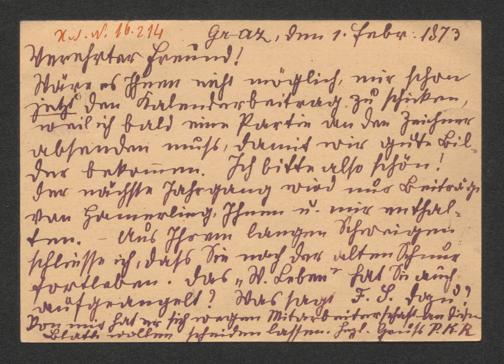 H. I. N. 16.214
Graz, den 1. Febr. 1873
Verehrter Freund!
Wäre es Ihnen nicht möglich, mir schon
jetzt den Kalenderbeitrag zu schicken,
weil ich bald eine Partie an den Zeichner
absenden muß, damit wir gute Bil-
der bekommen. Ich bitte also schön!
Der nächste Jahrgang wird nur Beiträge
von Hamerling, Ihnen u. mir enthal-
ten. – Aus Ihrem langen Schweigen
schließe ich, daß Sie nach der alten Schnur
fortleben. Das „N. Leben" hat Sie auch
aufgeangelt? Was sagt F. S. dazu?
Von mir hat er sich wegen Mitarbeiterschaft an diesem
Blatt wollen scheiden lassen. Hzl. Gruß P. K. R.